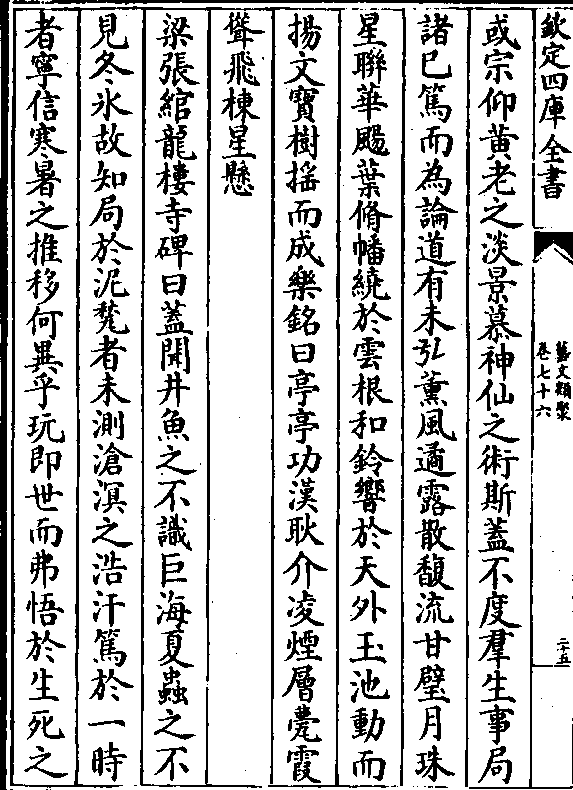 欽定四庫全書
藝文類聚
卷七十六
二十五
或宗仰黃老之淡景慕神仙之術斯蓋不度羣生事局
諸己篤而為論道有未弘薰風遁露散馥流甘璧月珠
星聯華颺葉脩幡繞於雲根和鈴響於天外玉池動而
揚文寶樹揺而成樂銘曰亭亭功漢耿介凌煙層甍霞
聳飛棟星懸
梁張綰龍樓寺碑曰蓋聞井魚之不識巨海夏蟲之不
見冬氷故知局於泥甃者未測滄溟之浩汗篤於一時
者寧信寒暑之推移何異乎玩即世而弗悟於生死之